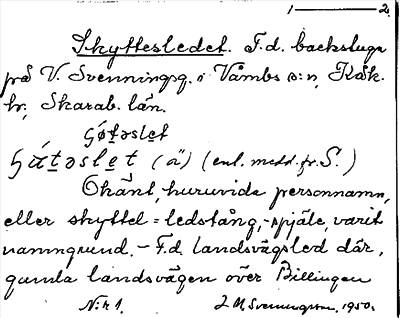 1 ——— 2
Skyttesledet. F.d. backstuga
på V. Svenningsg. i Våmbs s:n, Kåk.
hr, Skarab. län.
(ä) (enl. medd. fr. S.)
Okänt, huruvida personnamn,
eller skyttel = ledstång, -spjäle, varit
namngrund. - F.d. landsvägsled där,
gamla landsvägen över Billingen
N:r 1. 1950.